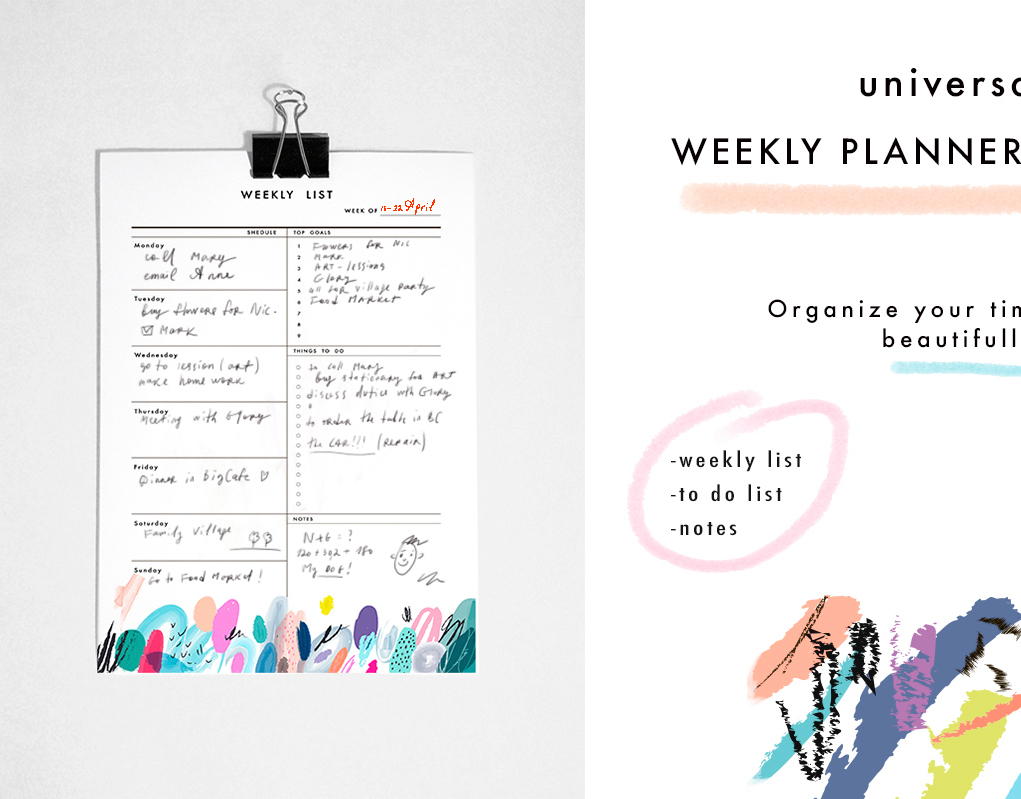 WEEKLY LIST
WEEK OF 16-22 April
SHEDULE
Monday
call Mary
email Anne
Tuesday
Buy flowers for Nic.
Mark
Wednesday
go to lession (art)
make home work
Thursday
Meeting with Glory
Friday
Dinner in BigCafe
Saturday
Family Village
Sunday
Go to Food Market!
TOP GOALS
1 Fowers for Nic
2 Mark
3 ART-lessions
4 Glory
5 all for village party
6 Food Market
7
8
9
THINGS TO DO
to call Mary
Buy stationary for ART
discuss dutice with Glory
to order the table in BC
the CAR!!! (REPAIR)
NOTES
N+G = ?
120+392+180
My DOG!
univers
WEEKLY PLANNER
Organize your tim
beautifull
-weekly list
-to do list
-notes